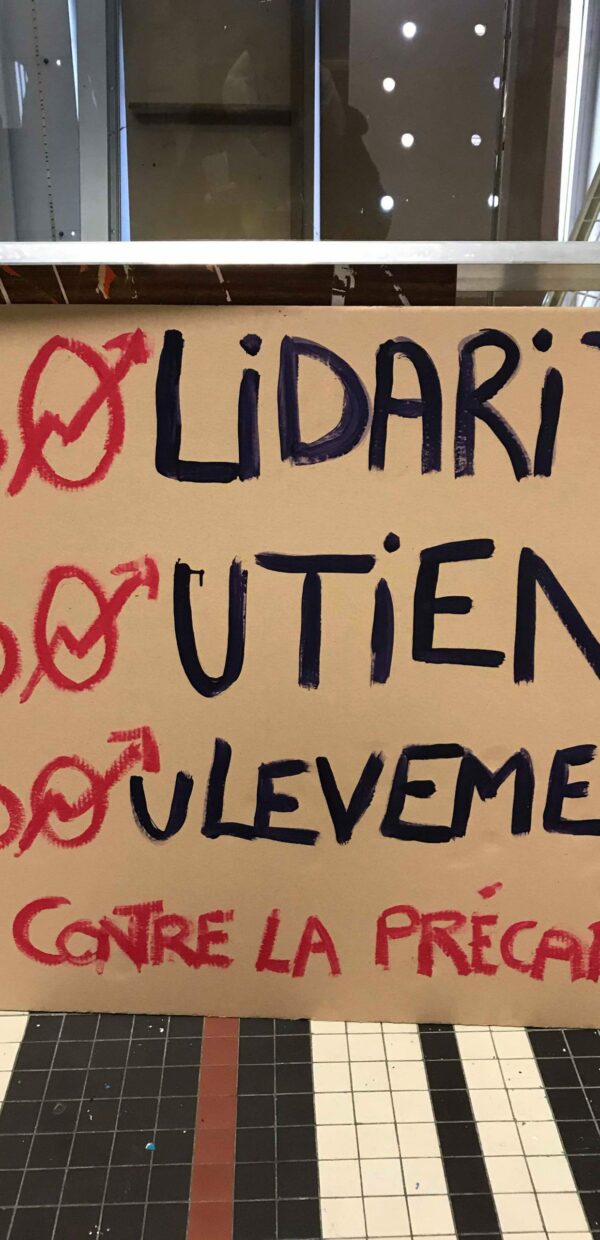 OLiDARi
OUTiEN
OULEVEME
CONTRE LA PRÉCAR